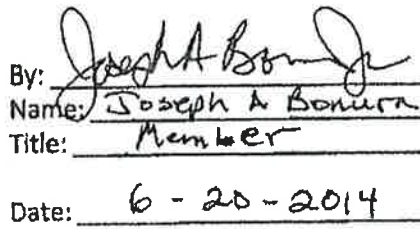 By: Joseph A Bon Jr
Name: Joseph A Bonura
Title: Member
Date: 6 - 20 - 2014